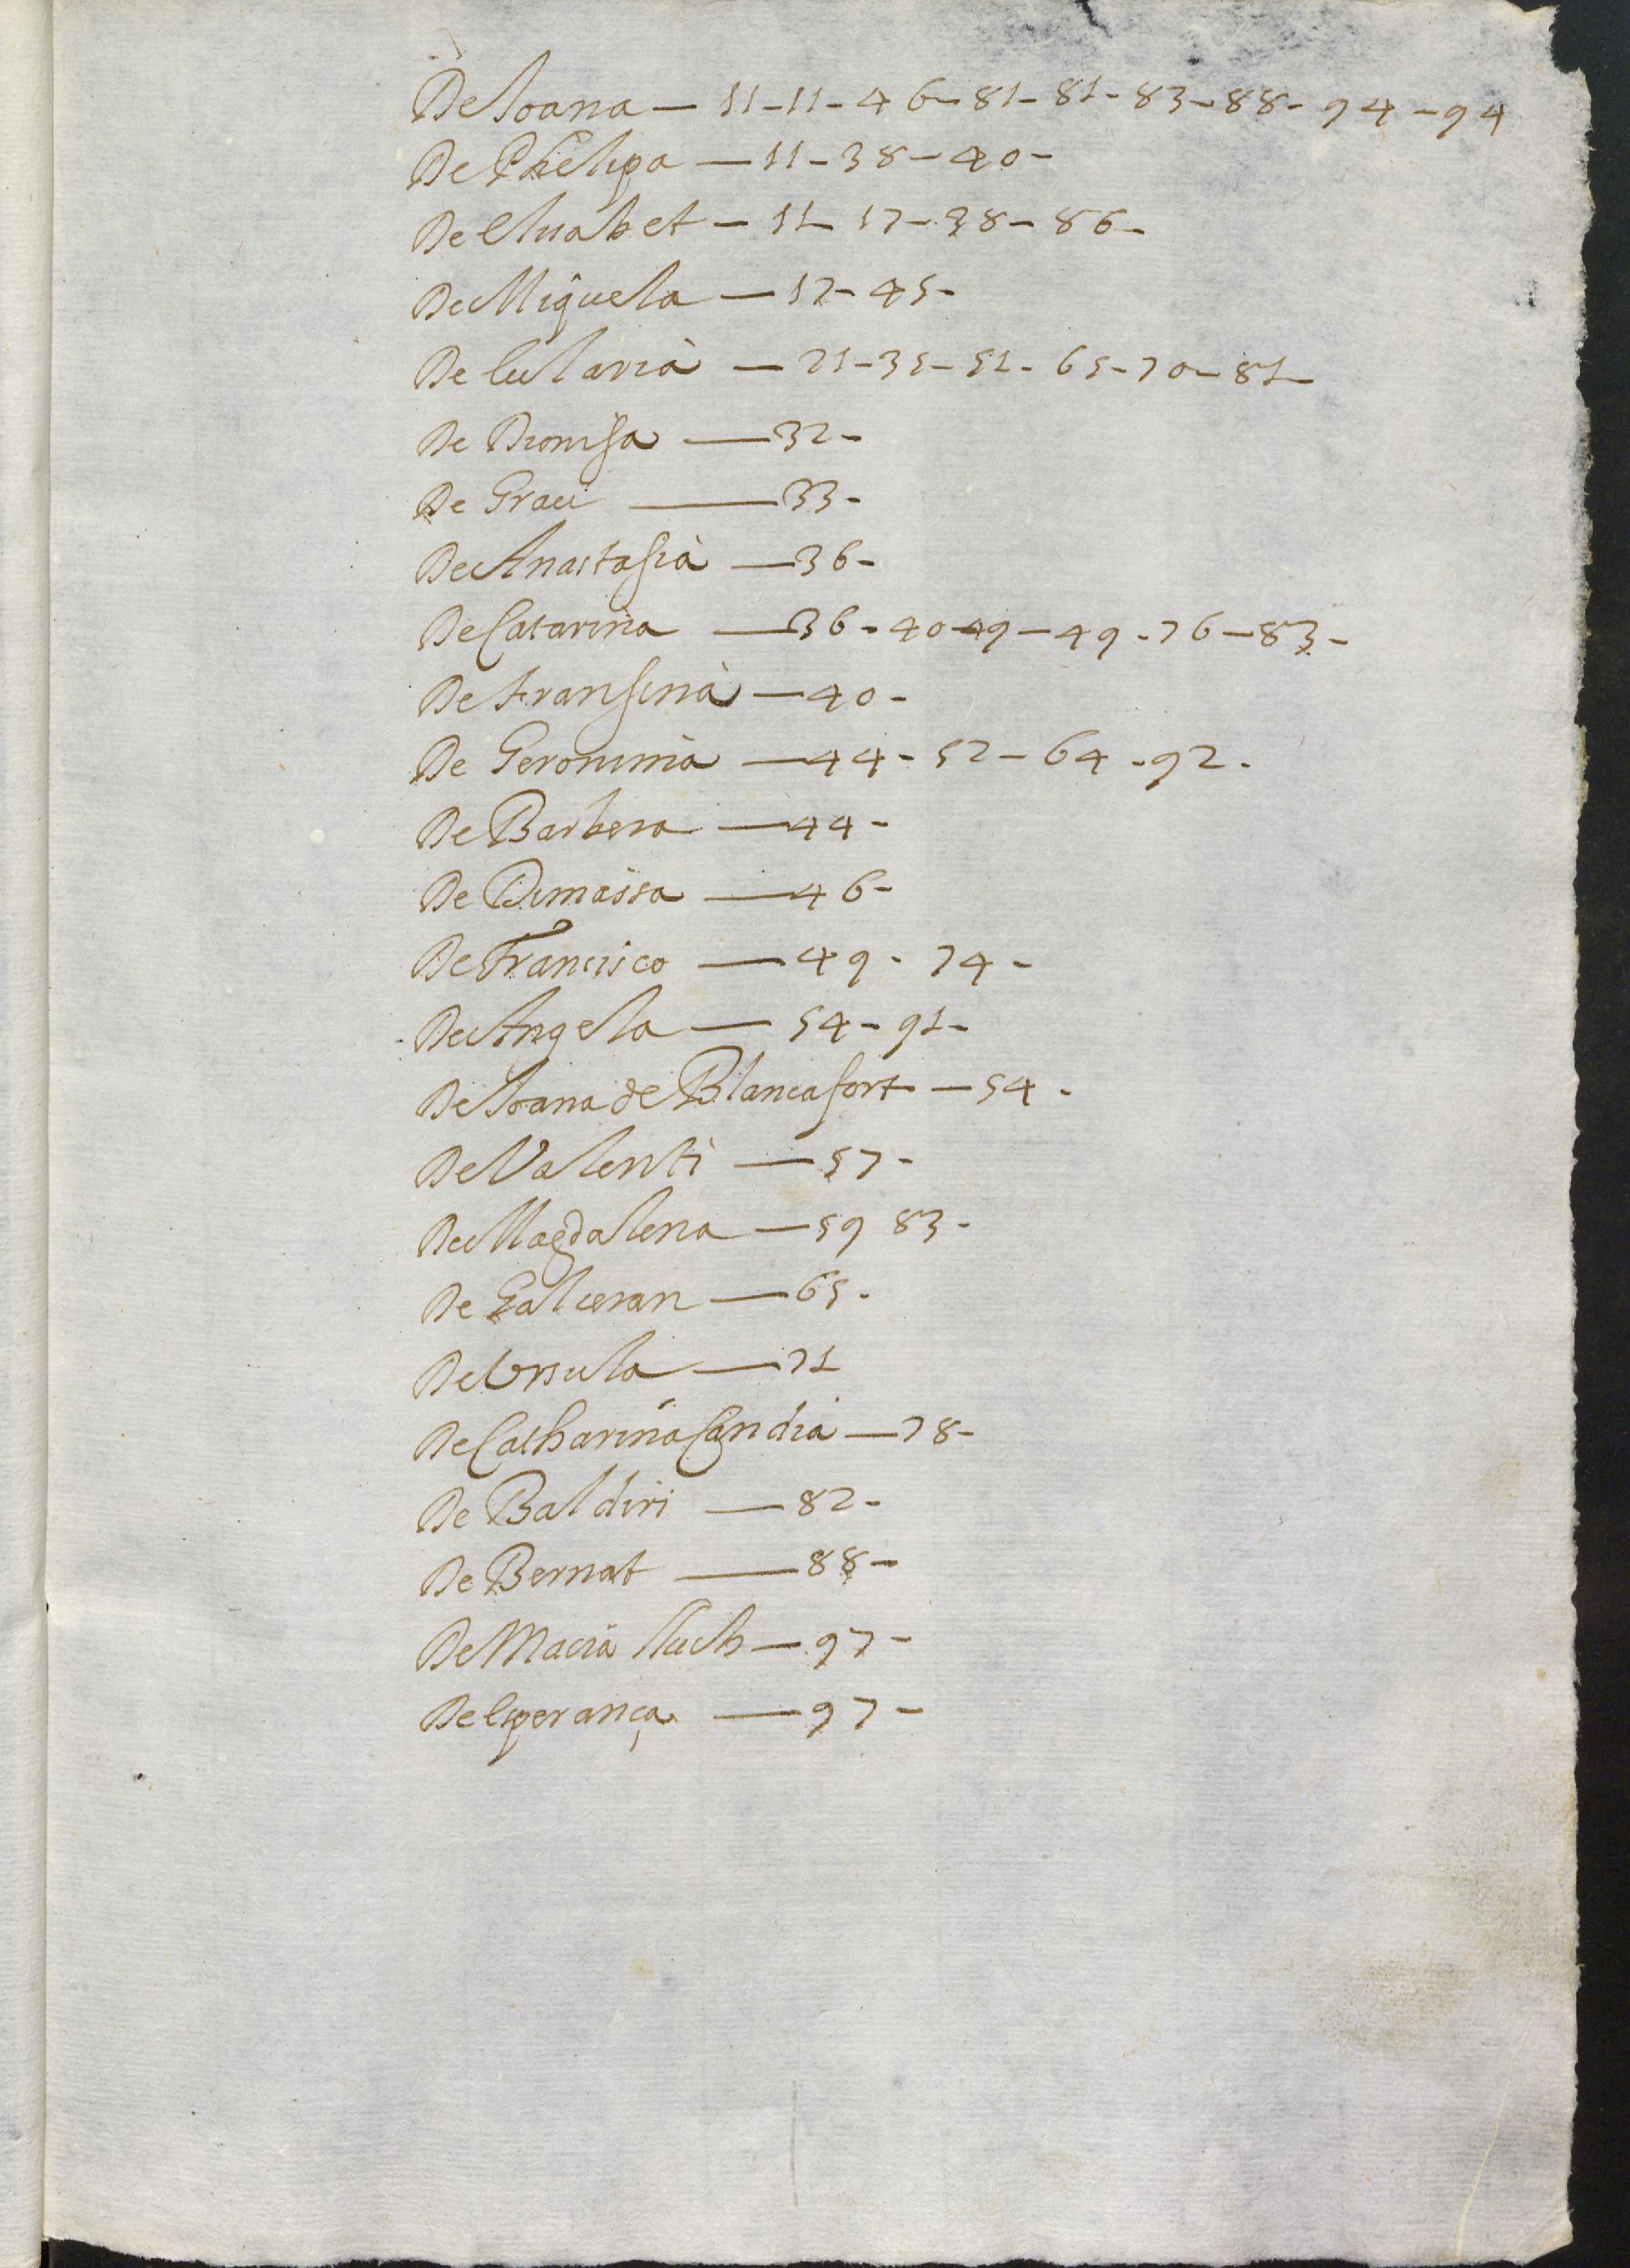 De Joana — 11 - 11 - 46 - 81 - 81 - 83 - 88 - 94 - 94
De Phelipa — 11 - 38 - 40 -
De Elisabet — 11 - 17 - 38 - 86 -
De Miquela — 12 - 45 -
De Eularia — 21 - 35 - 51 - 65 - 70 - 81 -
De Dionisa — 32 -
De Graci — 33 -
De Anastasia — 36 -
De Catarina — 36 - 40 - 49 - 49 - 76 - 83 -
De Fransina — 40 -
De Geronima — 44 - 52 - 64 - 92 -
De Barbera — 44 -
De Dimassa — 46 -
De Francisco — 49 - 74 -
De Angela — 54 - 91 -
De Joana de Blancafort — 54 -
De Valenti — 57 -
De Magdalena — 59 83 -
De Galceran — 65 -
De Ursula — 71
De Catharina Candia — 78 -
De Baldiri — 82 -
De Bernat — 88 -
De Macia lluch — 97 -
De Esperança — 97 -